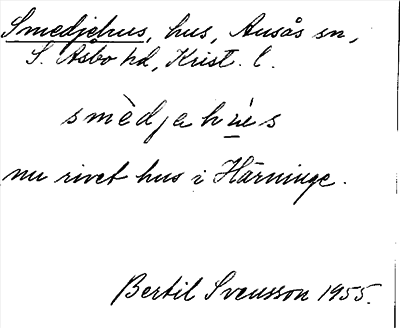 Smedjehus, hus, Ausås sn,
S. Åsbo hd, Krist. l.
smèdjahú̲s
nu rivet hus i Härninge.
Bertil Svensson 1955.